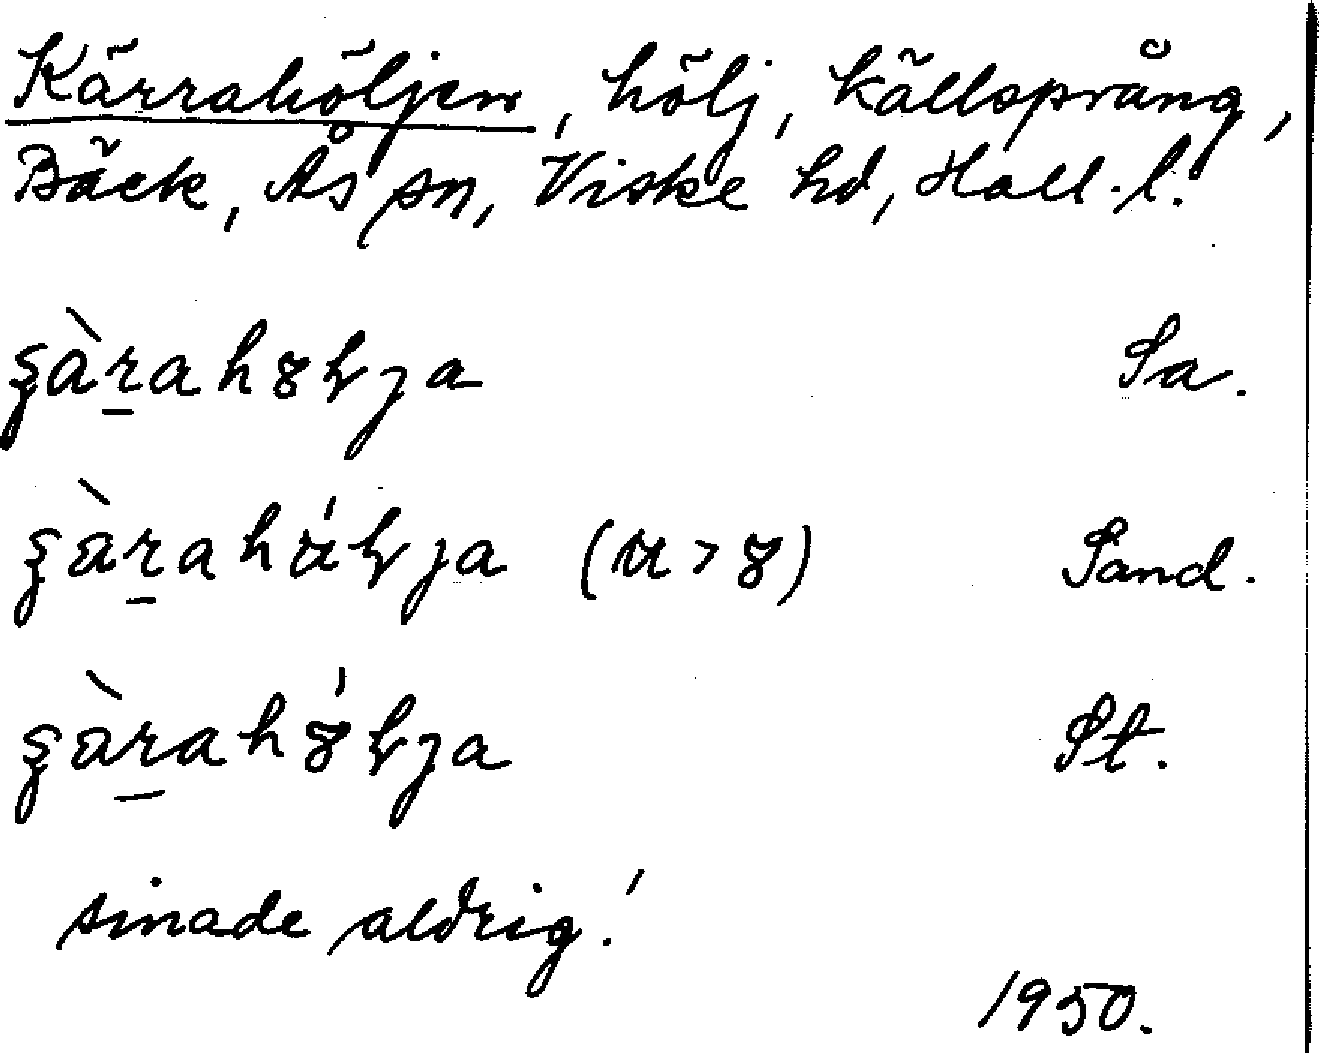 Kärrahöljen, hölj, källsprång,
Bäck, Ås sn, Viske hd, Hall. l.
Sa.
Sand.
St.
sinade aldrig!
1950.